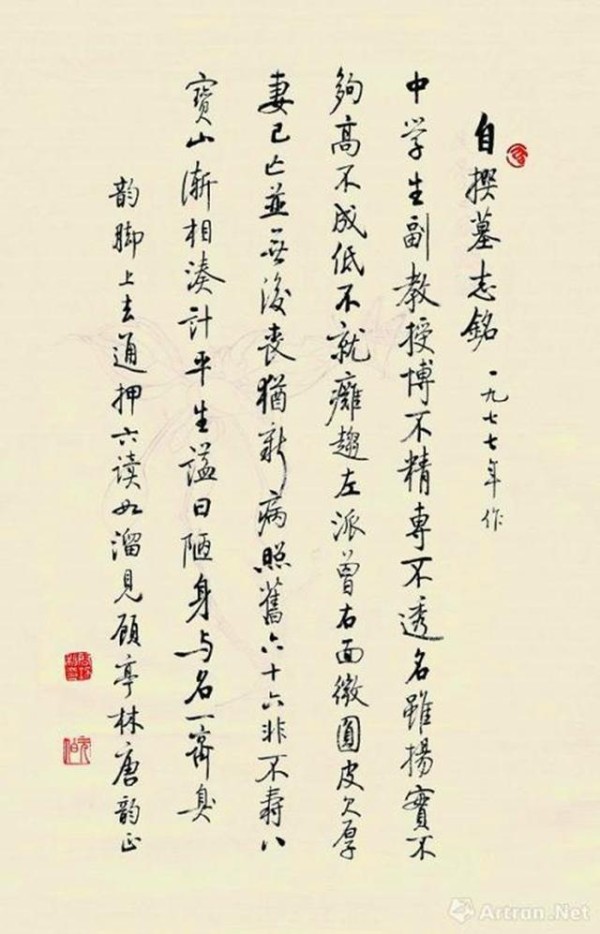 自撰墓志銘 一九七七年作
中学生副教授博不精專不透名雖揚實不
夠高不成低不就癱趨左派曾右面微圓皮欠厚
妻已亡並無後喪猶新病照舊六十六非不壽八
寶山漸相湊計平生謚曰陋身与名一齊臭
韵脚上去通押六读如溜見顾亭林唐韵正
Artron.Net